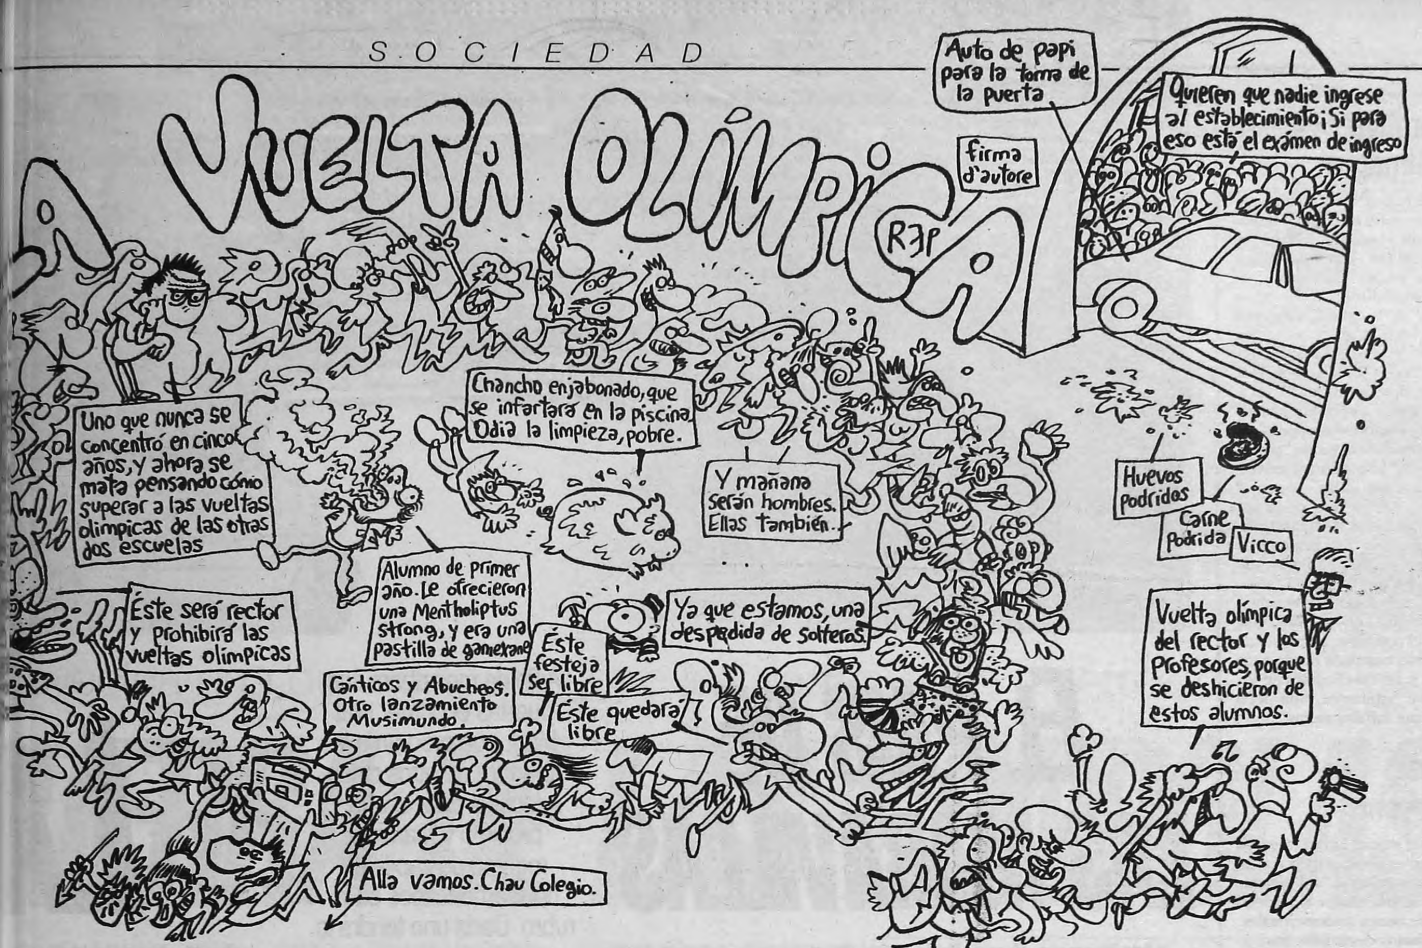 SOCIEDAD
LA VUELTA OLÍMPICA
REP
firma
d'autore
Auto de papi
para la toma de
la puerta
Quieren que nadie ingrese
al establecimiento ¡Si para
eso está el exámen de ingreso
Uno que nunca se
concentró en cinco
años, y ahora se
mata pensando cómo
superar a las vueltas
olímpicas de las otras
dos escuelas
Chancho enjabonado, que
se infartará en la piscina.
Odia la limpieza, pobre.
Y mañana
serán hombres.
Ellas también.
Huevos
podridos
Carne
podrida
Vicco
Éste será rector
y prohibirá las
vueltas olímpicas
Alumno de primer
año. Le ofrecieron
una Mentholiptus
strong, y era una
pastilla de gamexane
Éste
festeja
ser libre
Ya que estamos, una
despedida de solteros.
Éste quedará
libre
Cánticos y Abucheos.
Otro lanzamiento
Musimundo.
Vuelta olímpica
del rector y los
profesores, porque
se deshicieron de
estos alumnos.
Alla vamos. Chau Colegio.